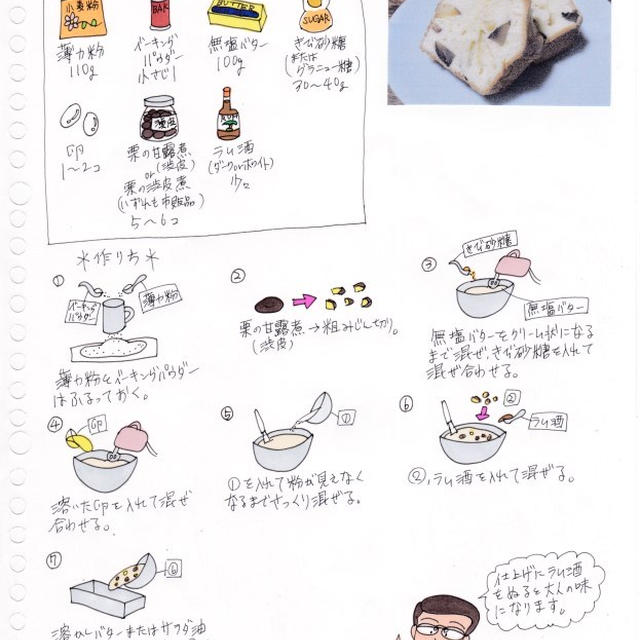 小麦粉
BAK
BUTTER
SUGAR
薄力粉
110g
ベーキング
パウダー
小さじ1
無塩バター
100g
きび砂糖
(または
グラニュー糖)
30〜40g
渋皮
卵
1〜2コ
栗の甘露煮
(渋皮)
or
栗の渋皮煮
(いずれも市販品)
5〜6コ
ラム酒
(ダークorホワイト)
少々
*作り方*
①
ベーキング
パウダー
薄力粉
薄力粉とベーキングパウダー
はふるっておく。
②
栗の甘露煮→粗みじん切り。
(渋皮)
③
きび砂糖
無塩バター
無塩バターをクリーム状になる
まで混ぜ、きび砂糖を入れて
混ぜ合わせる。
④
卵
溶いた卵を入れて混ぜ
合わせる。
⑤
①
①を入れて粉が見えなく
なるまでさっくり混ぜる。
⑥
②
ラム酒
②,ラム酒を入れて混ぜる。
⑦
⑥
溶かしバターまたはサラダ油
仕上げにラム酒
をぬると大人の味
になります。